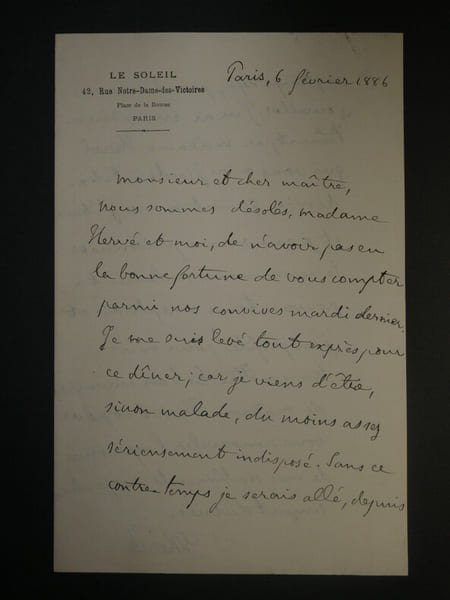 LE SOLEIL
42, Rue Notre-Dame-des-Victoires
Place de la Bourse
PARIS
Paris, 6 février 1886
Monsieur et cher maître,
nous sommes désolés, madame
Hervé et moi, de n'avoir pas eu
la bonne fortune de vous compter
parmi nos convives mardi dernier.
Je me suis levé tout exprès pour
ce dîner; car je viens d'être,
sinon malade, du moins assez
sérieusement indisposé. Sans ce
contre-temps je serais allé, depuis